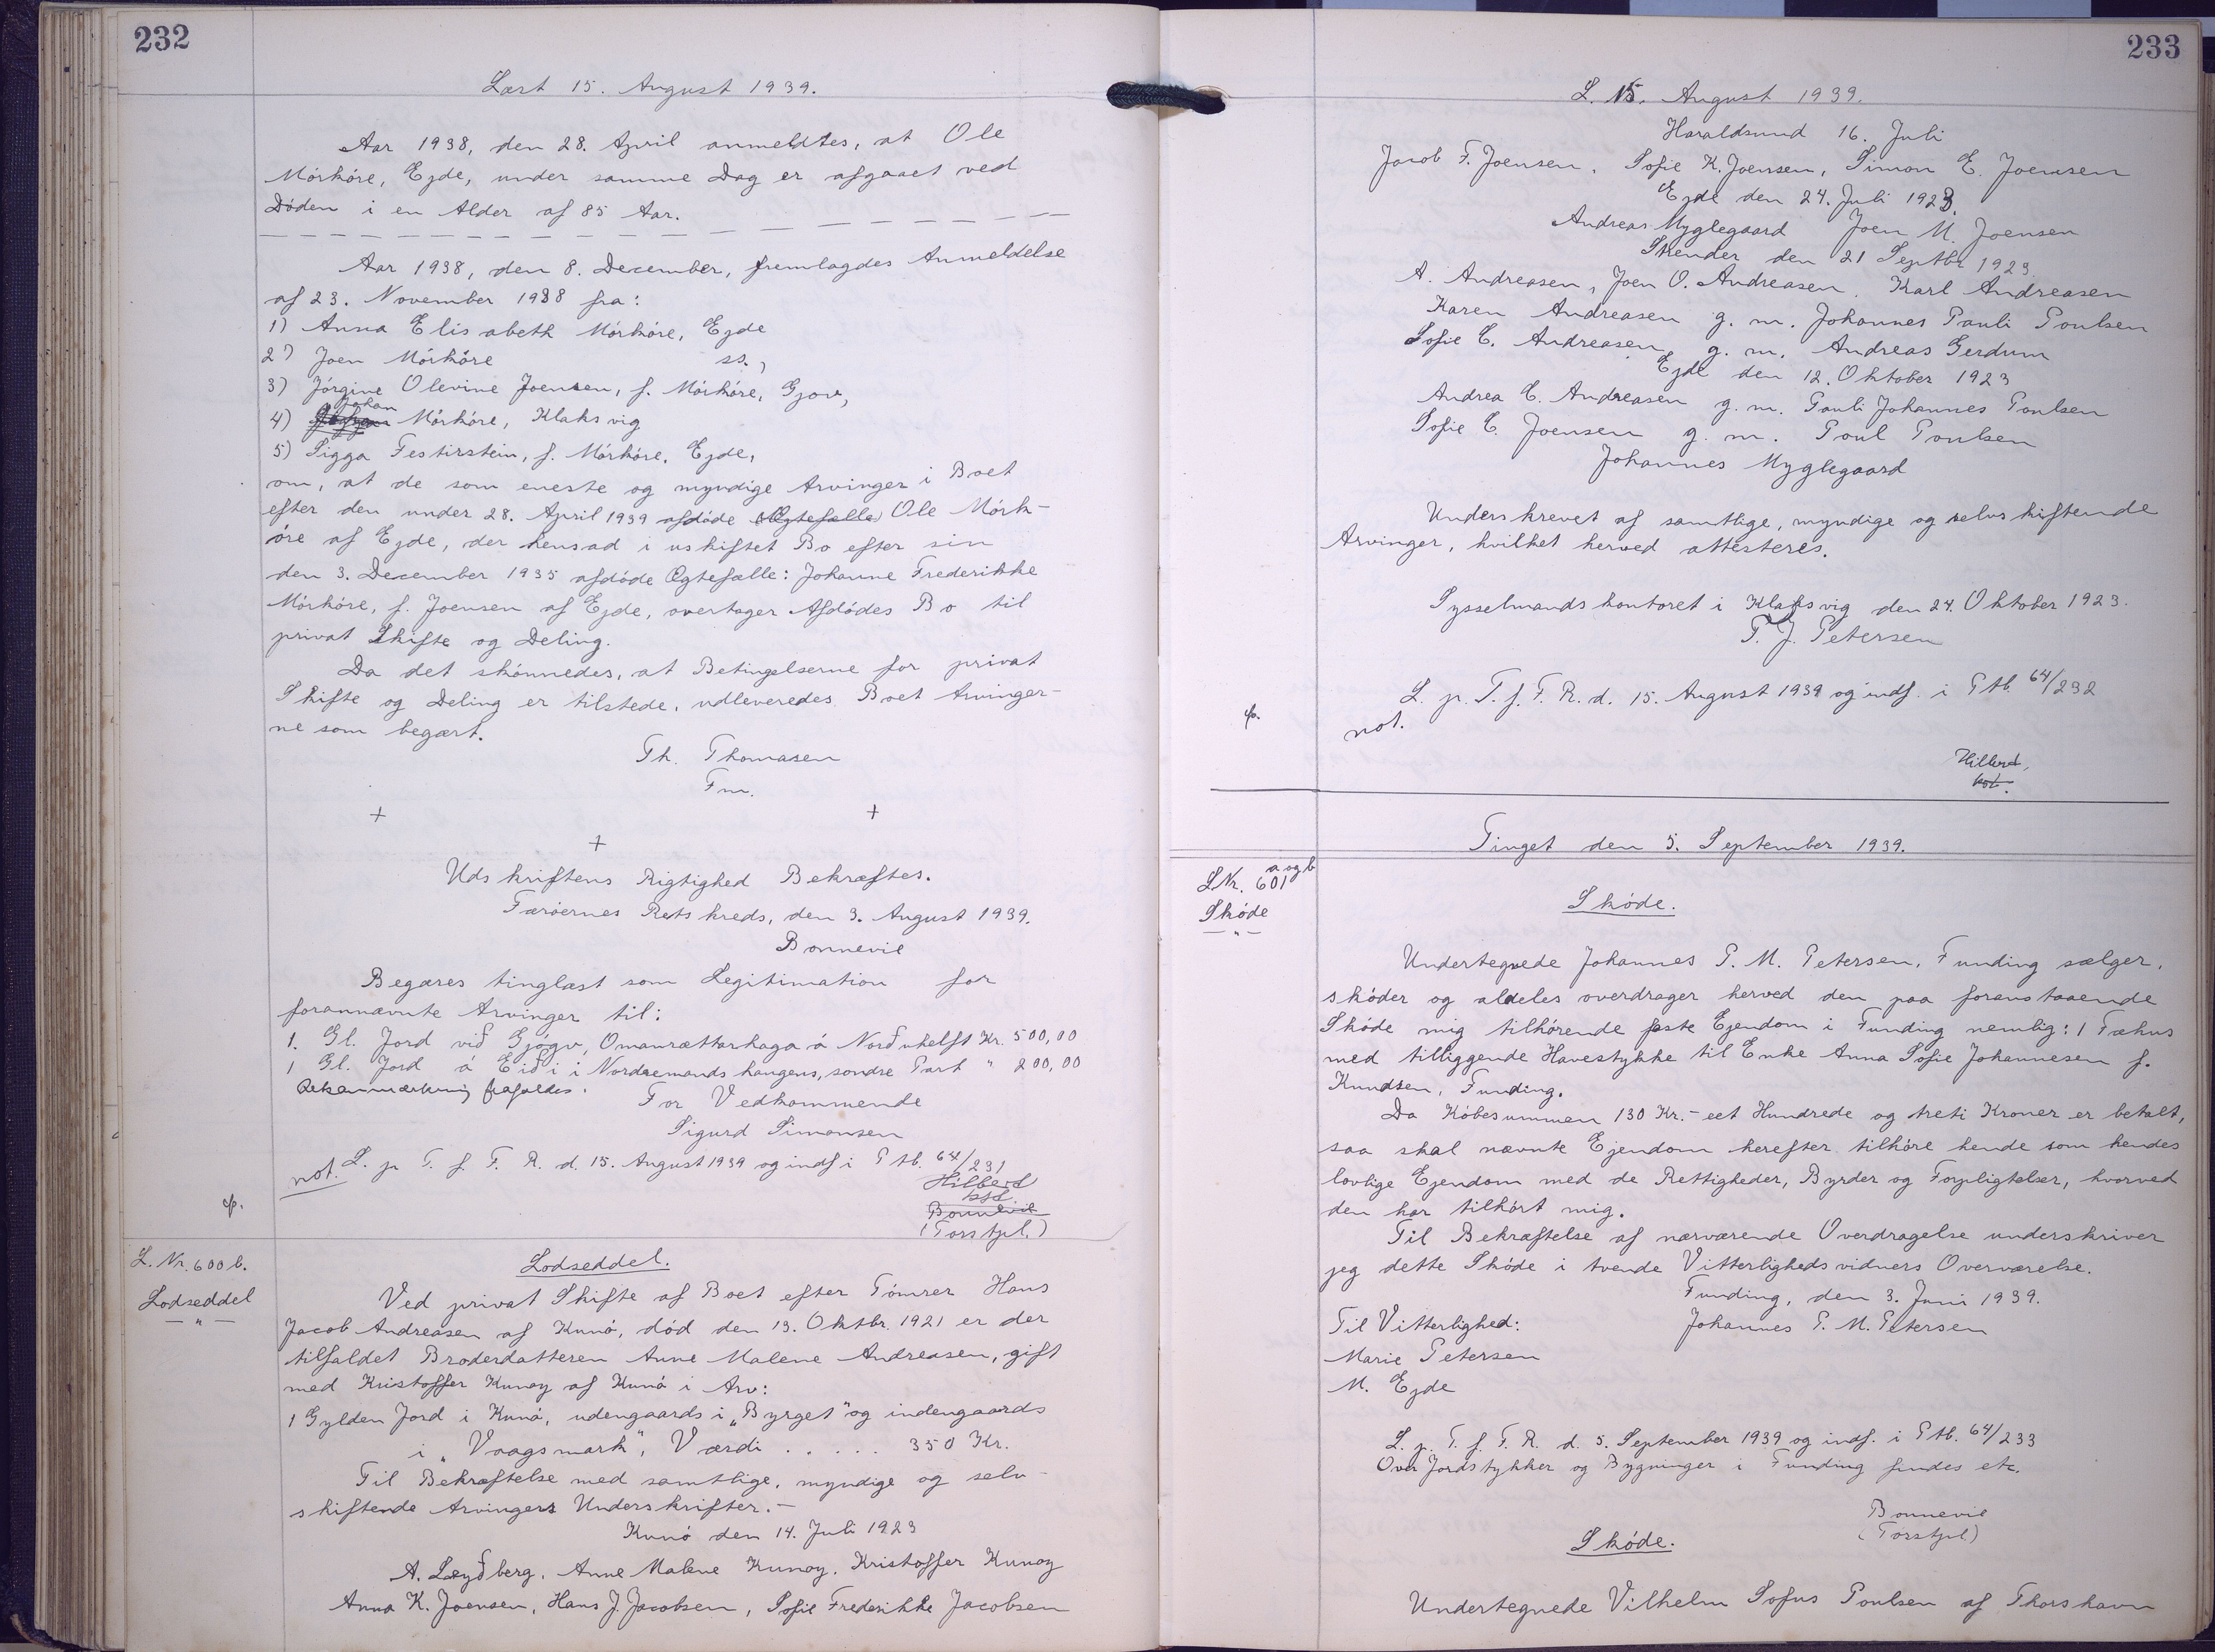 232
Læst 15. August 1939.
Aar 1938, den 28. April anmeldtes, at Ole
Mórkóre, Ejde, under samme Dag er afgaaet ved
Döden i en Alder af 85 Aar.
Aar 1938, den 8. December, fremlagdes Anmeldelse
af 23. November 1938 fra:
1) Anna Elisabeth Mórkóre, Ejde
2) Joen Mórkóre ss.,
3) Jórgine Olevine Joensen, f. Mórkóre, Gjov,
4) Johan Mórkóre, Klaksvig
5) Sigga Festirstein, f. Mórkóre, Ejde,
om, at de som eneste og myndige Arvinger i Boet
efter den under 28. April 1939 afdóde (Ægtefælle) Ole Mórk-
óre af Ejde, der hensad i uskiftet Bo efter sin
den 3. December 1935 afdóde Ægtefælle: Johanne Frederikke
Mórkóre, f. Joensen af Ejde, overtager Afdódes Bo til
privat Skifte og Deling.
Da det skónnedes, at Betingelserne for privat
Skifte og Deling er tilstede, udleveredes Boet Arvinger-
ne som begært.
Th. Thomasen
Fm.
+ +
+
Udskriftens Rigtighed Bekræftes.
Færóernes Retskreds, den 3. August 1939.
Bonnevie
Begæres tinglæst som Legitimation for
forannævnte Arvinger til:
1. Gl. Jord við Gjógv, Omanrættarhaga á Norðuhelft Kr. 500,00
1 Gl. Jord á Eiði i Nordremands haugens, sondre Part " 200,00
frafaldes.
For Vedkommende
Sigurd Simonsen
not. L. p. T. f. F. R. d. 15. August 1939 og indf i Ptb. 64/231
Hilbert
kst.
Bonnevie
(Torstpl.)
cp.
L. Nr. 600 b.
Lodseddel
— " —
Lodseddel.
Ved privat Skifte af Boet efter Tómrer Hans
Jacob Andreasen af Kunó, dód den 13. Oktbr. 1921 er der
tilfaldet Broderdatteren Anne Malene Andreasen, gift
med Kristoffer Kunoy af Kunó i Arv:
1 Gylden Jord i Kunó, udengaards i „Byrget" og indengaards
i „Vaagsmark", Værdi . . . . . 350 Kr.
Til Bekræftelse med samtlige, myndige og selv-
skiftende Arvingers Underskrifter.-
Kunó den 14. Juli 1923
A. Lzyðberg. Anne Malene Kunoy. Kristoffer Kunoy
Anna K. Joensen, Hans J. Jacobsen, Sofie Frederikke Jacobsen
233
L. 15. August 1939.
Haraldsund 16. Juli
Jacob F. Joensen, Sofie K. Joensen, Simon E. Joensen
Ejde den 24. Juli 1923.
Andreas Myglegaard Joen M. Joensen
Strender den 21 Septbr 1923.
A. Andreasen, Joen O. Andreasen. Karl Andreasen
Karen Andreasen g. m. Johannes Pauli Poulsen
Sofie C. Andreasen, g. m. Andreas Gerdum
Ejde den 12. Oktober 1923
Andrea C. Andreasen g. m. Pauli Johannes Poulsen
Sofie C. Joensen g. m. Poul Poulsen
Johannes Myglegaard
Underskrevet af samtlige, myndige og selvskiftende
Arvinger, hvilket herved attesteres.
Sysselmandskontoret i Klaksvig den 24. Oktober 1923.
P. J. Petersen
L. p. T. f. F. R. d. 15. August 1939 og indf. i Ptb. 64/232
cp.
not.
Hilbert,
kst.
Tinget den 5. September 1939.
L Nr. 601 a og b
Skóde
— " —
Skóde.
Undertegnede Johannes P. M. Petersen, Funding sælger,
skóder og aldeles overdrager herved den paa foranstaaende
Skóde mig tilhórende faste Ejendom i Funding nemlig: 1 Fæhus
med tilliggende Havestykke til Enke Anna Sofie Johannesen f.
Knudsen, Funding.
Da Kóbesummen 130 Kr.- eet Hundrede og treti Kroner er betalt,
saa skal nævnte Ejendom herefter tilhóre hende som hendes
lovlige Ejendom med de Rettigheder, Byrder og Forpligtelser, hvorved
den har tilhórt mig.
Til Bekræftelse af nærværende Overdragelse underskriver
jeg dette Skóde i tvende Vitterlighedsvidners Overværelse.
Funding, den 3. Juni 1939.
Til Vitterlighed: Johannes P. M. Petersen
Marie Petersen
M. Ejde
L. p. T. f. F. R. d. 5. September 1939 og indf. i Ptb. 64/233
Over Jordstykker og Bygninger i Funding findes etc.
Bonnevie
(Torstpl.)
Skóde.
Undertegnede Vilhelm Sofus Poulsen af Thorshavn